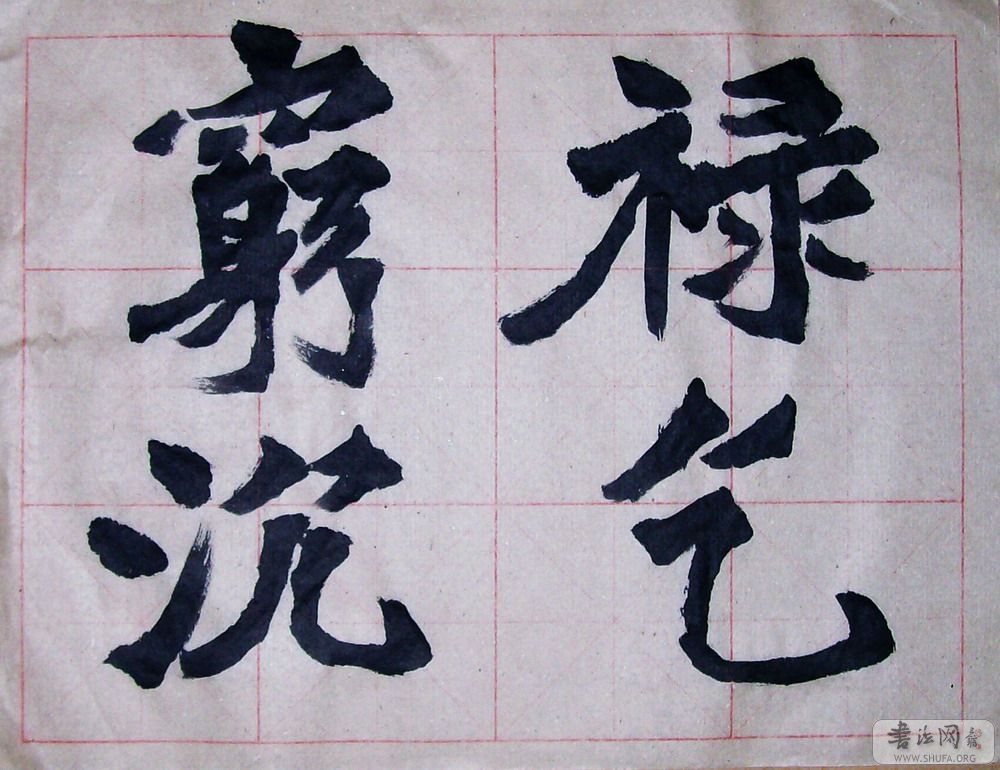 禄乞
穷沉
书法网
WWW.SHUFA.ORG